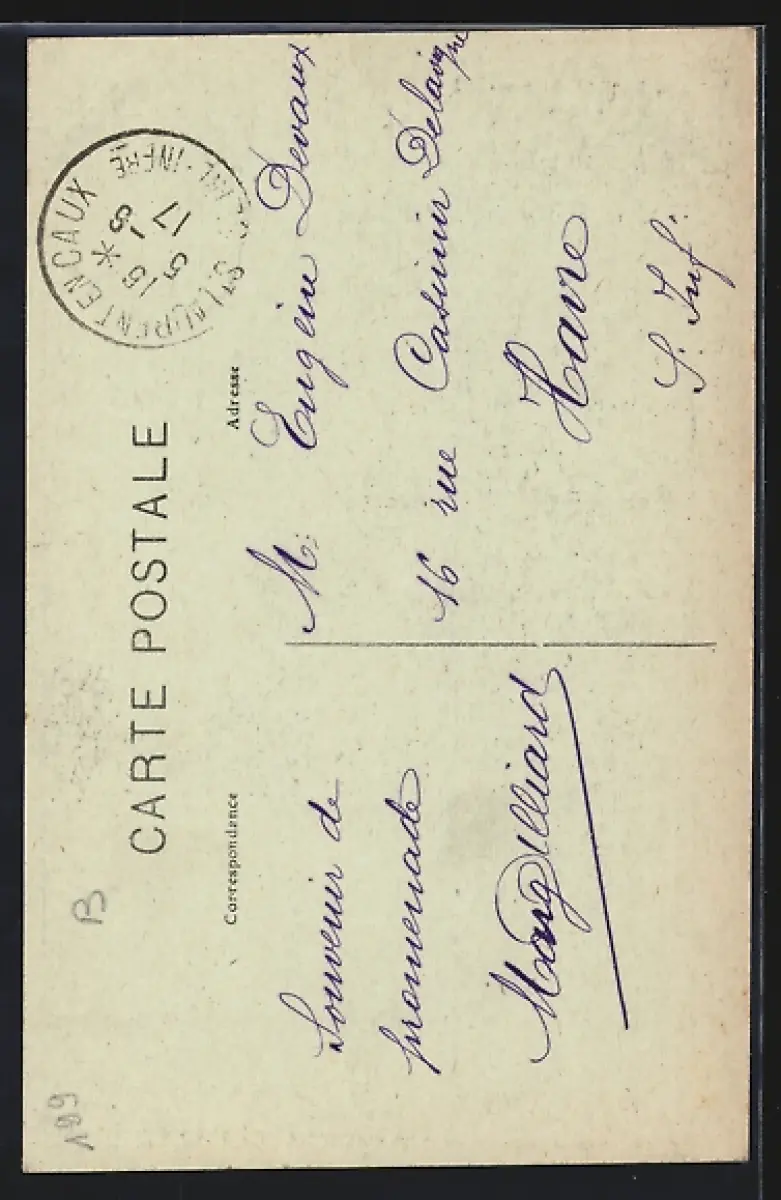 CARTE POSTALE
Correspondance
Souvenir de
promenade
Adresse
M. Eugène Devaux
16 rue Casimir Delavigne
Havre
S. Inf.
ST LAURENT EN CAUX
INFRE
17 -8
5
B
199